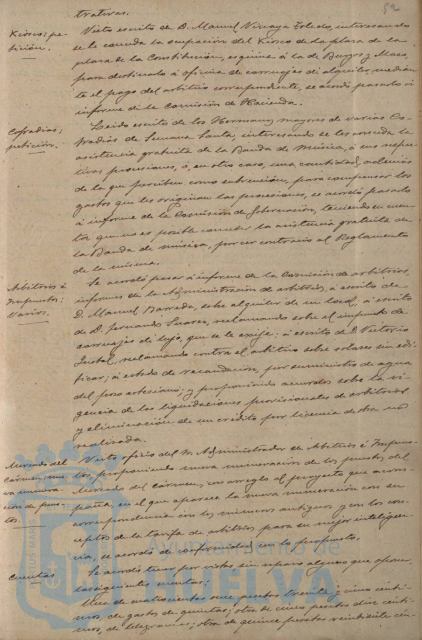 52
trativas.
Kiosco; petición.
Visto escrito de D. Manuel Vizcaya Toledo, interesando
se le conceda la ocupación del Kiosco de la plaza de la
plaza de la Constitución, esquina á la de Burgos y Mazo
para destinarlo á oficina de carruajes de alquiler, median-
te el pago del arbitrio correspondiente, se acordó pasarlo á
informe de la Comisión de Hacienda.
Cofradías; petición.
Leido escrito de los Hermanos mayores de varias Co-
fradías de Semana Santa, interesando se les conceda la
asistencia gratuita de la Banda de Música, á sus respec-
tivas procesiones, ó, en otro caso, una cantidad, además
de la que perciben como subvención, para compensar los
gastos que les originan las procesiones, se acordó pasarlo
á informe de la Comisión de Gobernación, teniendo en cuen-
ta que no es posible conceder la asistencia gratuita de
la Banda de música, por ser contrario al Reglamento
de la misma.
Arbitrios é Impuestos: Varios.
Se acordó pasar á informe de la Comisión de arbitrios,
informes de la Administración de arbitrios, á escrito de
D. Manuel Barreda, sobre alquiler de un local, á escrito
de D. Fernando Suarez, reclamando sobre el impuesto de
carruajes de lujo, que se le exige; á escrito de D. Victorio
reclamando contra el arbitrio sobre solares sin edi-
ficar; á estado de recaudación, por suministro de agua
del pozo artesiano; y proponiendo acuerdos sobre la vi-
gencia de las liquidaciones provisionales de arbitrios,
y eliminación de un crédito por licencia de obra no
realizada.
Mercado del Cármen; nueva numeración de puestos.
Visto oficio del Sr. Administrador de Arbitrios é Impues-
tos, proponiendo nueva numeración de los puestos del
Mercado del Cármen, con arreglo al proyecto que acom-
paña, en el que aparece la nueva numeración con su
correspondencia con los números antiguos y con los con-
ceptos de la tarifa de arbitrios para su mejor inteligen-
cia, se acordó de conformidad con lo propuesto.
Cuentas
Se acordó tener por vistas sin reparo alguno que oponer
las siguientes cuentas:
Una de cuatrocientas once pesetas treinta y cinco cénti-
mos, de gastos de quintas; otra de cinco pesetas diez cénti-
mos, de telegramas; otra de quince pesetas veintisiete cén-
Ayuntamiento de
HUELVA